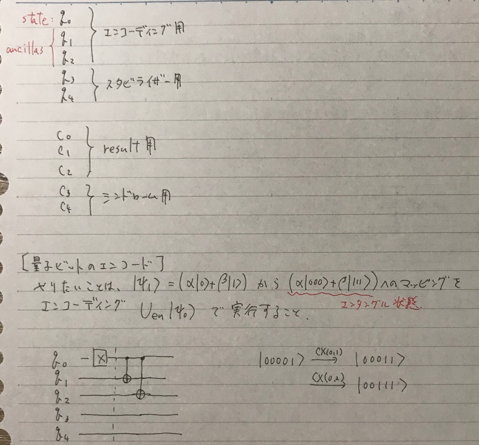 state: q₀
ancillas q₁ } エンコーディング用
q₂
q₃
q₄ } スタビライザー用
C₀
C₁ } result 用
C₂
C₃
C₄ } シンドローム用
[量子ビットのエンコード]
やりたいことは、|ψ₁> = (α|0>+β|1>) から (α|000>+β|111>) へのマッピングを
エンタングル状態
エンコーディング Uen|ψ₀> で実行すること.
q₀ X
q₁
q₂
q₃
q₄
|00001> CX(0,1)→ |00011>
CX(0,2)→ |00111>